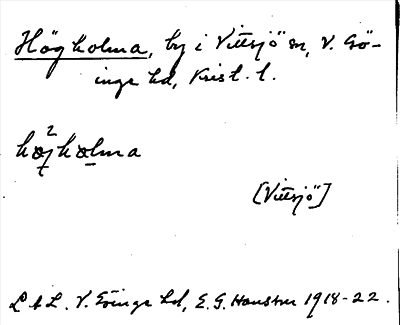 Högholma, by i Vittsjö sn, V. Gö-
inge hd, Krist. l.
hø²jhølma
[Vittsjö]
L A L. V. Göinge hd, E. G. 1918-22.